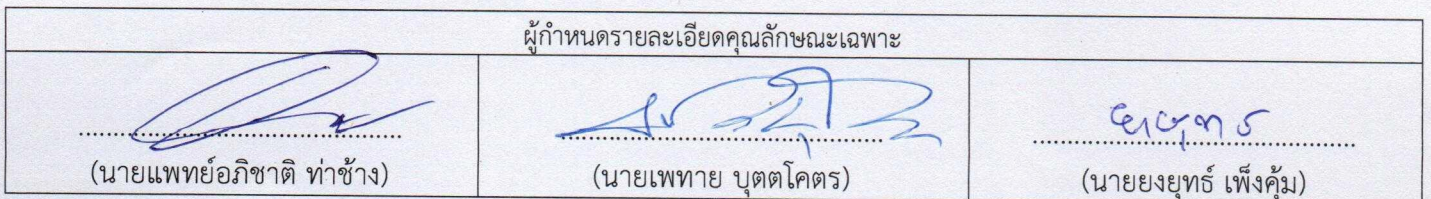 ผู้กำหนดรายละเอียดคุณลักษณะเฉพาะ
ยงยุทธ
(นายแพทย์อภิชาติ ท่าช้าง)
(นายเพทาย บุตตโคตร)
(นายยงยุทธ์ เพ็งคุ้ม)